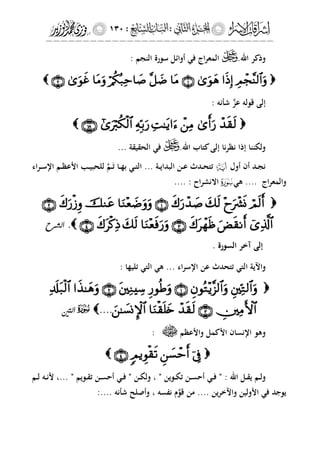 إشراقات الإسراء الجزء الثاني : البيان السابع : ١٣٠
وذكر الله ﷻ المعراج في أوائل سورة النجم :
﴿ وَٱلنَّجْمِ إِذَا هَوَىٰ ۝١ مَا ضَلَّ صَاحِبُكُمْ وَمَا غَوَىٰ ۝٢ ﴾
إلى قوله عزَّ شأنه :
﴿ لَقَدْ رَأَىٰ مِنْ ءَايَٰتِ رَبِّهِ ٱلْكُبْرَىٰ ۝١٨ ﴾
ولكننا إذا نظرنا إلى كتاب الله ﷻ في الحقيقة ...
نجد أن أول تتحدث عن البداية ... التي بها تمَّ للحبيب الأعظم الإسراء
والمعراج .... هي الانشراح : ....
﴿ أَلَمْ نَشْرَحْ لَكَ صَدْرَكَ ۝١ وَوَضَعْنَا عَنكَ وِزْرَكَ ۝٢
ٱلَّذِىٓ أَنقَضَ ظَهْرَكَ ۝٣ وَرَفَعْنَا لَكَ ذِكْرَكَ ۝٤ ﴾. الشرح
إلى آخر السورة .
والآية التي تتحدث عن الإسراء ... هي التي تليها :
﴿ وَٱلتِّينِ وَٱلزَّيْتُونِ ۝١ وَطُورِ سِينِينَ ۝٢ وَهَٰذَا ٱلْبَلَدِ
ٱلْأَمِينِ ۝٣ لَقَدْ خَلَقْنَا ٱلْإِنسَٰنَ....﴾ التين
وهو الإنسان الأكمل والأعظم :
﴿ فِىٓ أَحْسَنِ تَقْوِيمٍ ۝٤ ﴾
ولم يقل الله : " في أحسن تكوين " ، ولكن " في أحسن تقويم " ...، لأنه لم
يوجد في الأولين والآخرين .... من قوَّم نفسه ، وأصلح شأنه ....: